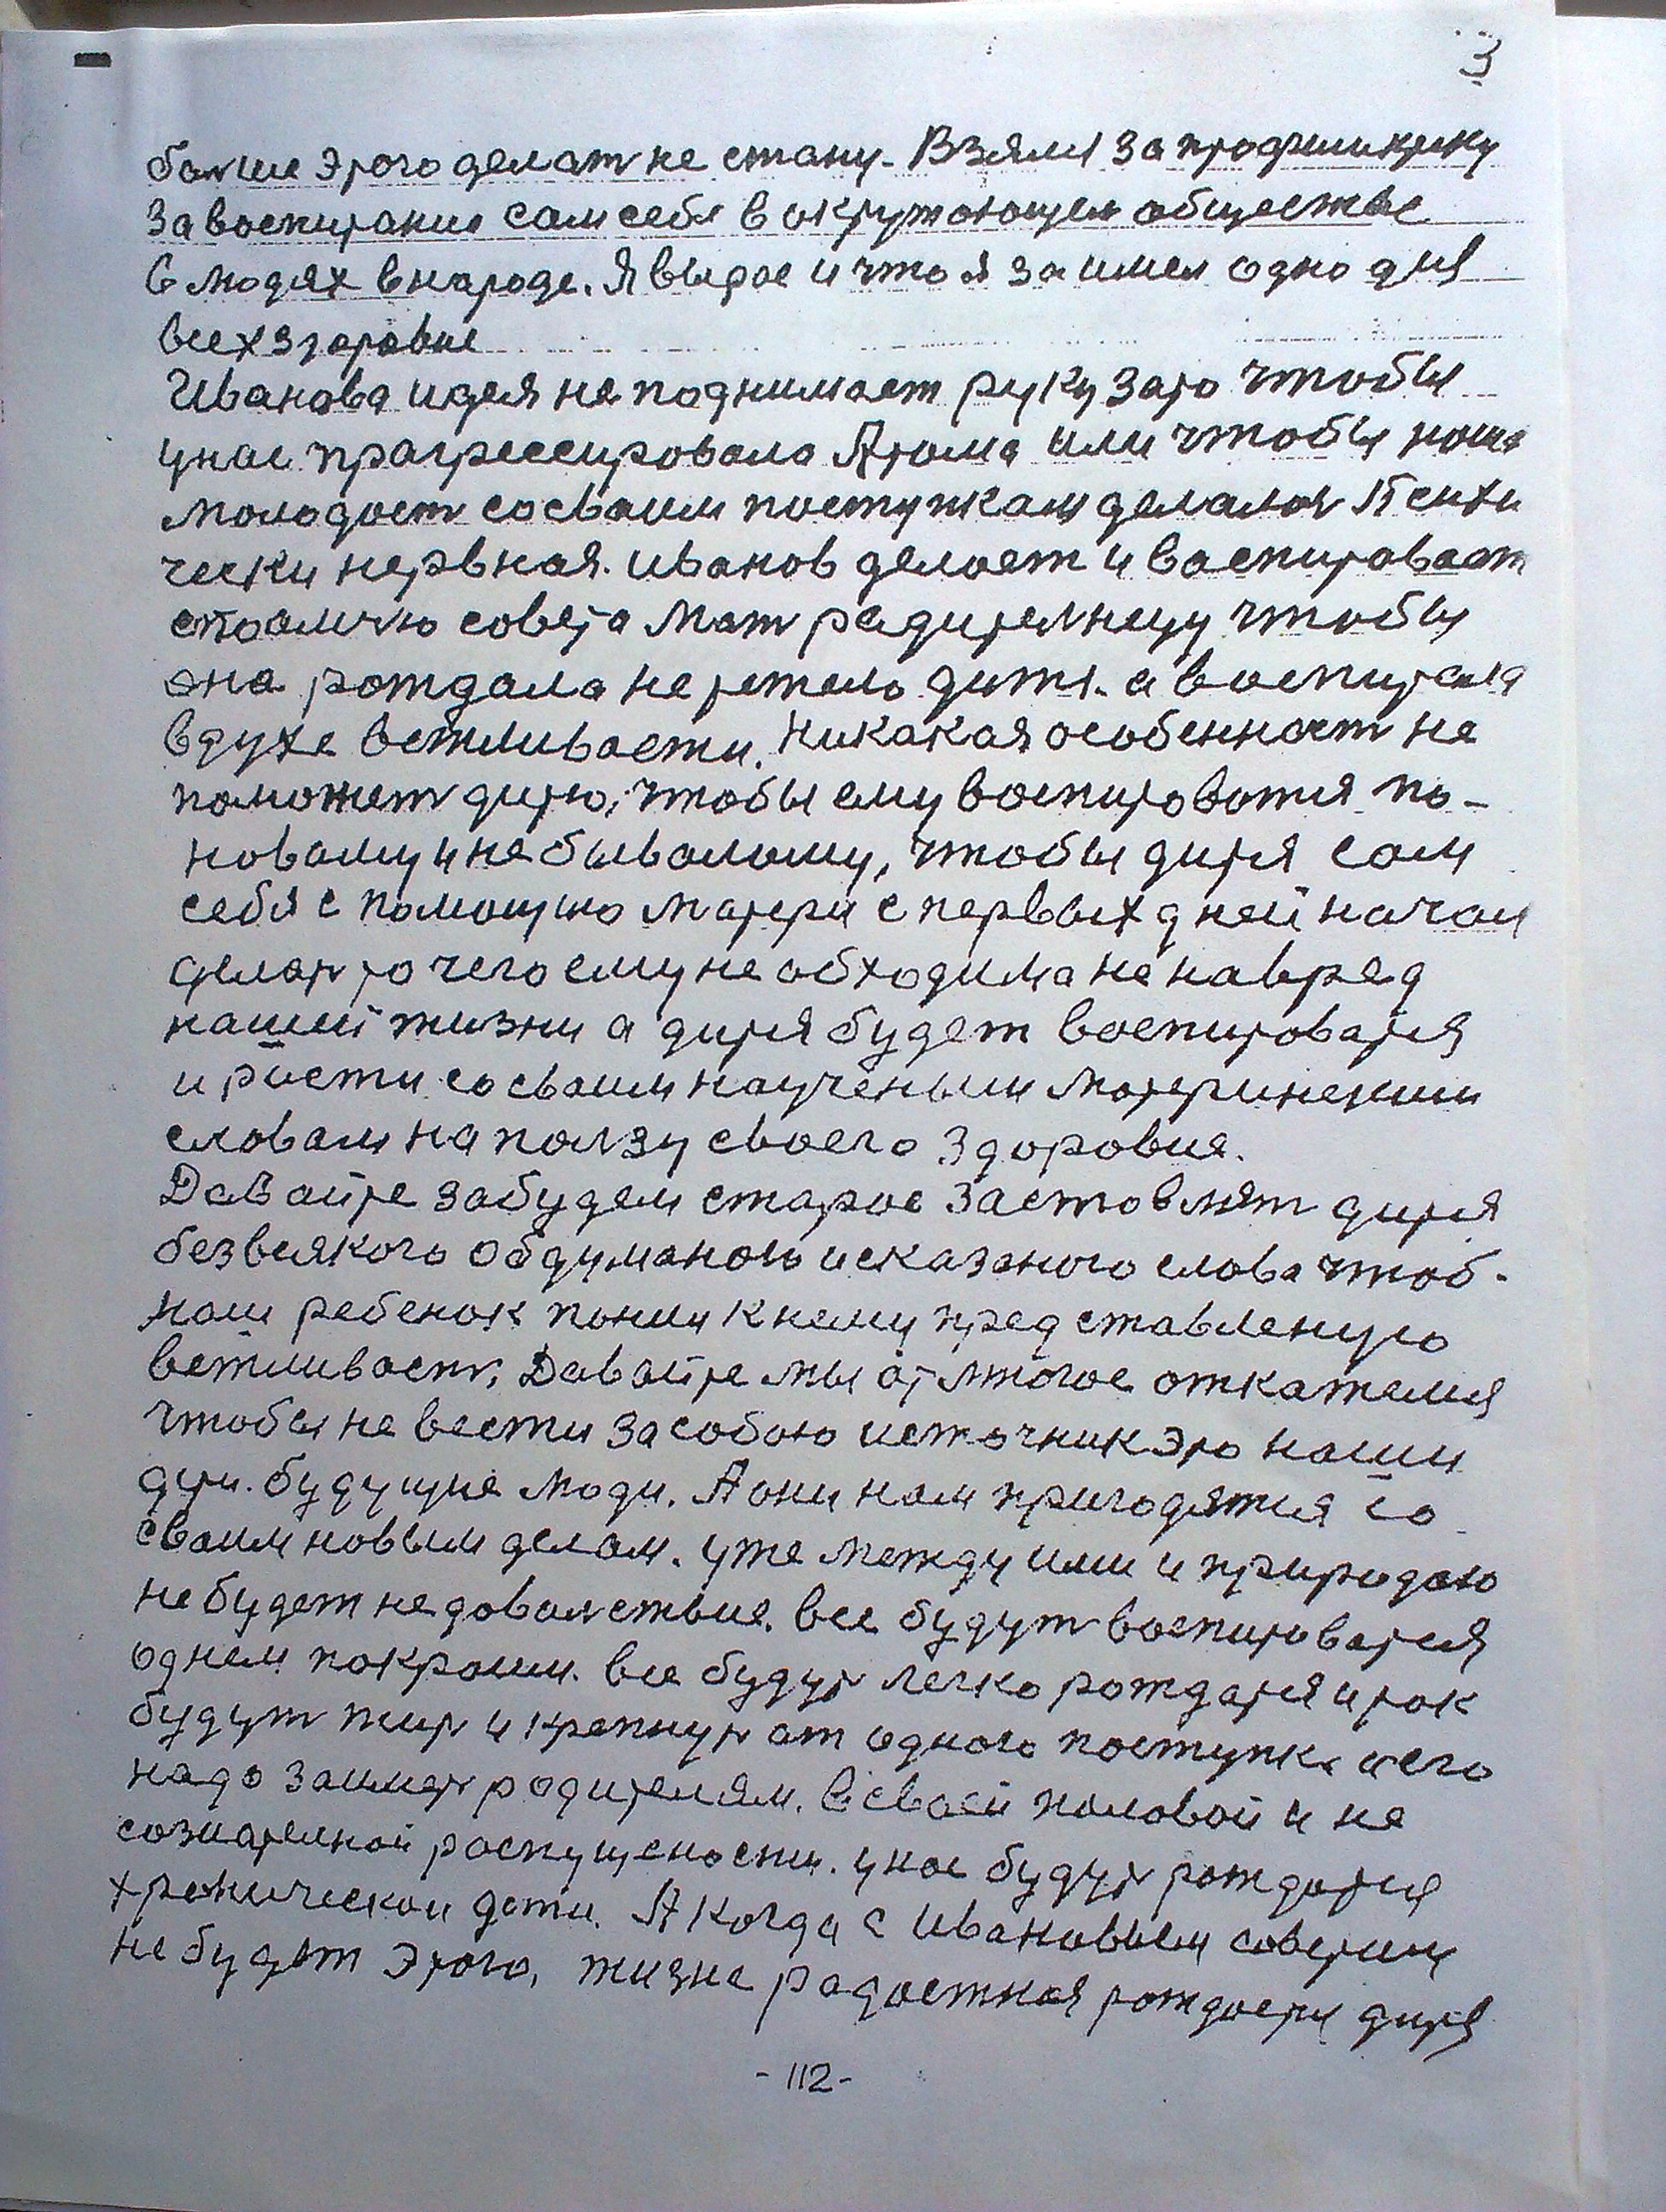 3
болше этого делат не стану. Взялы за профиликтику
За воспитание сам себя в окружающем обществе
в людях в народе. Я вырос и что я заимел одно для
всех здоровие
Иванова идея не поднимает руку зато чтобы
унас прагрессировала Атома или чтобы наша
молодост со своим поступкам делалас Психи
чески нервная. Иванов делает и воспитовает
спомичю совета Мат радителнецу чтобы
она рождала не тежело дитя. а воспитала
вдухе вежливасти. Никакая особенност не
поможет дитю, чтобы ему воспитоватся по-
новаму и небываломы, чтобы дитя сам
себя с помощию матери с первых дней начал
делат то чего ему не обходима не навред
нашей жизни а дитя будет воспитоватя
и расти со своим научёным материнским
словам на ползу своего Здоровия.
Давайте забудем старое Заставлят дитя
безвсякого обдуманого исказаного слова чтоб.
наш ребенок понил к нему представленую
вежливаст, Давайте мы от этогое откажемся
чтобы не вести за собою источник это наши
дети. будущие люди. А они нам пригодятся со
сваим новым делам. уже между ими и природою
не будет недоволствия. все будут воспитоватся
однем покроим. все будут легко рождатя и так
будут жит и крепнут от одного поступка и его
надо заимет родителям. В своей половой и не
сознателной роспущености. унас будут рождатся
хронической дети. А когда с Ивановым советим
не будет этого, жизне радостная рождаетя дитя
- 112 -